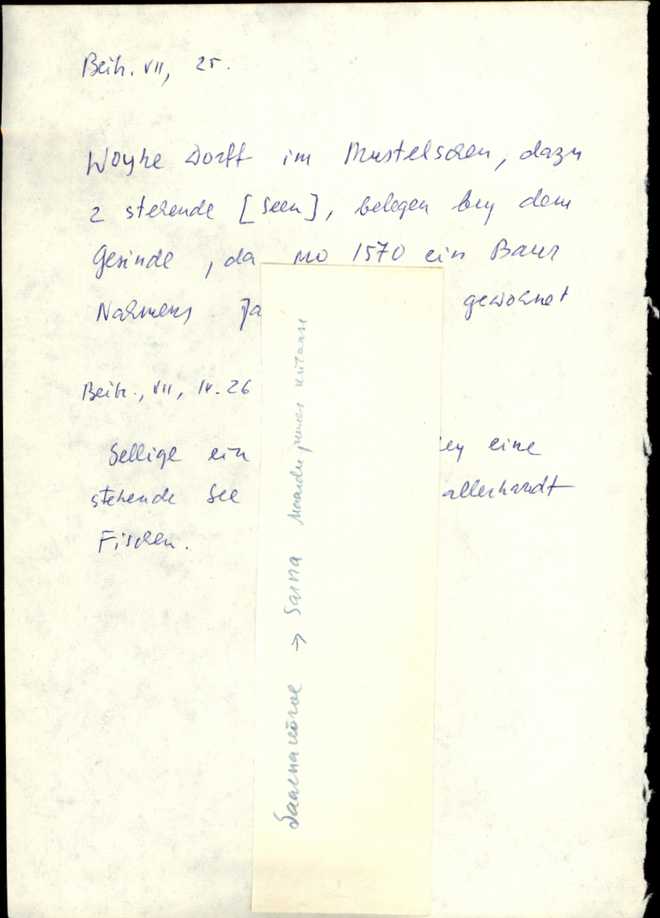 Beih. VII, 25.
Woyke Dorff im Mustelschen, dazu
2 stehende [Seen], belegen bey dem
Gesinde, da ein Baur
Nahmens gewohnet
Beih., VII, lk. 26
Sellige ein eine
stehende See allerhandt
Fischen.
Saarnakõrve → Sarna